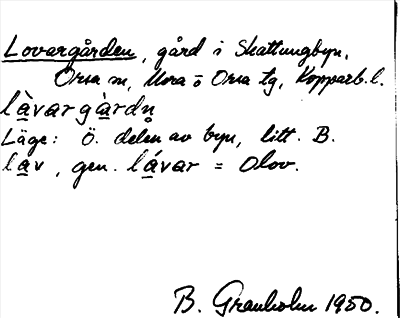 Lovargården, gård i Skattungbyn,
Orsa sn, Mora o Orsa tg, Kopparb. l.
là̱vargà̱rdn̥
Läge: Ö. delen av byn, litt. B.
la̱v, gen. lá̱var = Olov.
B. Granholm 1950.